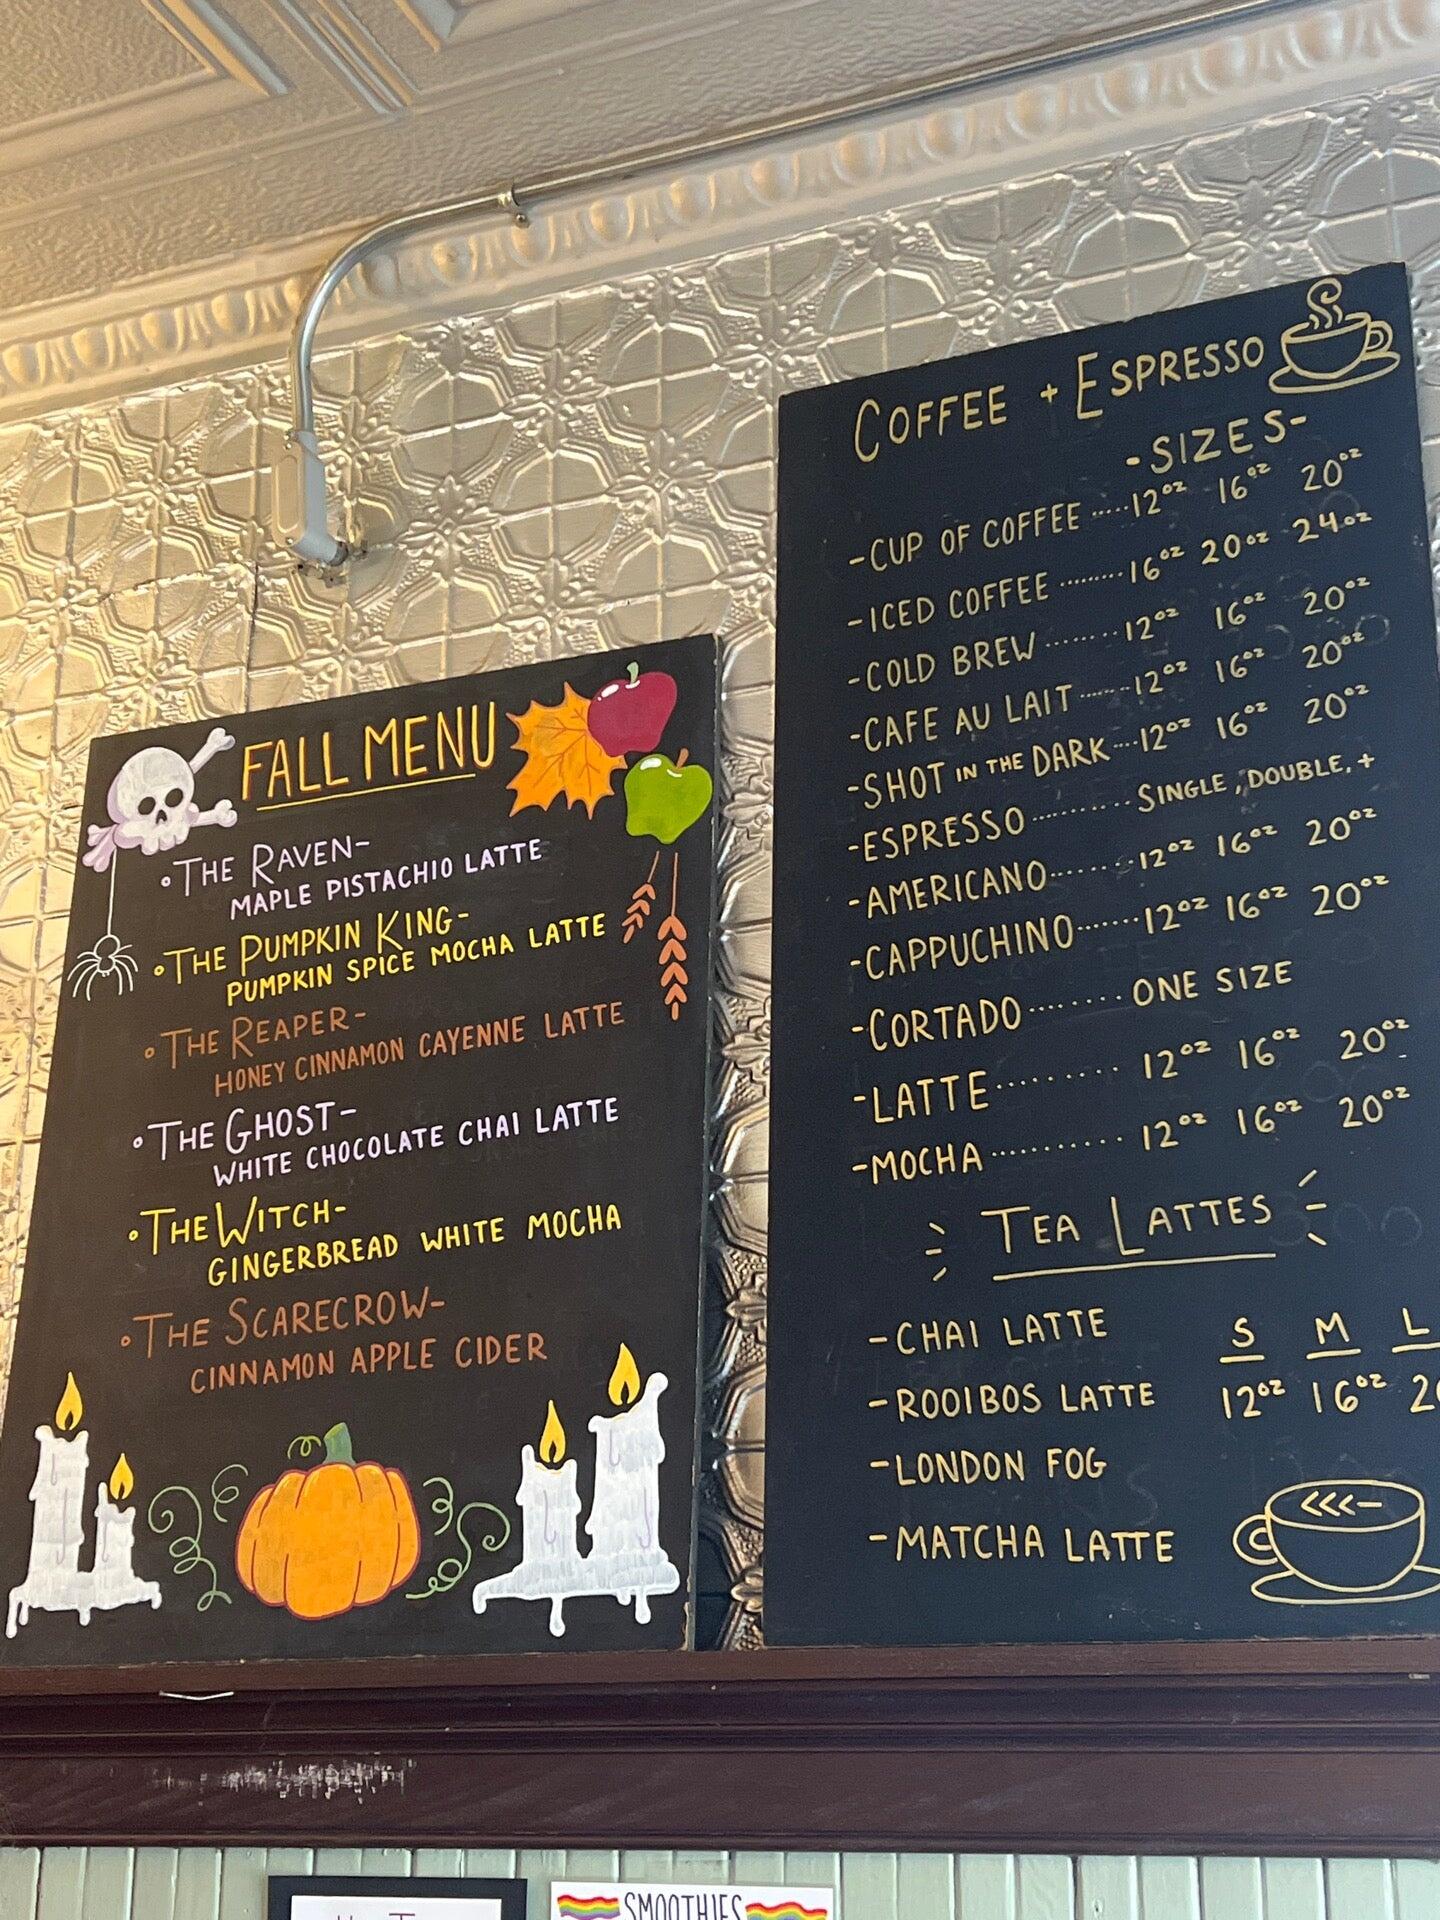 FALL MENU
• THE RAVEN-
MAPLE PISTACHIO LATTE
• THE PUMPKIN KING-
PUMPKIN SPICE MOCHA LATTE
• THE REAPER-
HONEY CINNAMON CAYENNE LATTE
• THE GHOST-
WHITE CHOCOLATE CHAI LATTE
• THE WITCH-
GINGERBREAD WHITE MOCHA
• THE SCARECROW-
CINNAMON APPLE CIDER
COFFEE + ESPRESSO
-SIZES-
-CUP OF COFFEE.....12oz 16oz 20oz
-ICED COFFEE.........16oz 20oz 24oz
-COLD BREW.......12oz 16oz 20oz
-CAFE AU LAIT.......12oz 16oz 20oz
-SHOT IN THE DARK....12oz 16oz 20oz
-ESPRESSO..........SINGLE, DOUBLE, +
-AMERICANO.......12oz 16oz 20oz
-CAPPUCHINO......12oz 16oz 20oz
-CORTADO........ONE SIZE
-LATTE.........12oz 16oz 20oz
-MOCHA..........12oz 16oz 20oz
TEA LATTES
-CHAI LATTE S M L
-ROOIBOS LATTE 12oz 16oz
-LONDON FOG
-MATCHA LATTE
SMOOTHIES